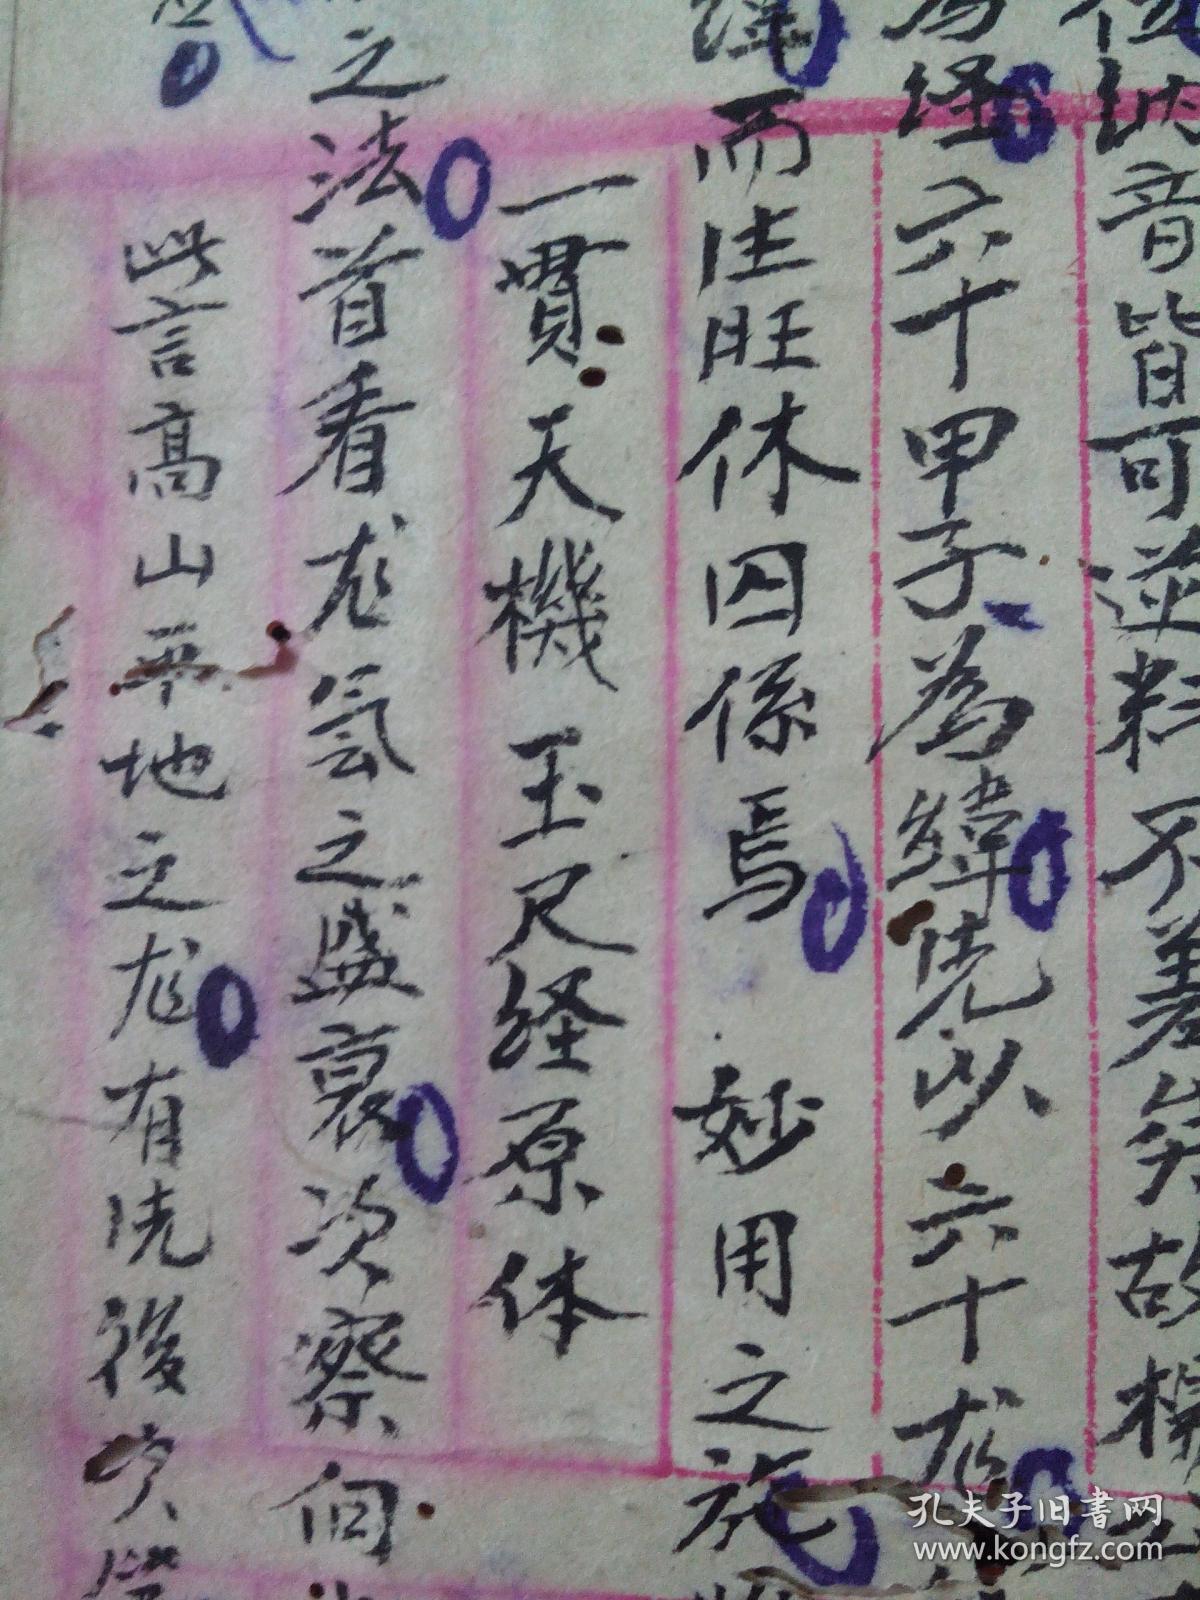 音皆可逆料不差矣故
為经六十甲子為緯先以六十龙
而生旺休囚係焉 妙用之施
一貫天機玉尺经原体
之法首看龙氣之盛衰次察向
此言高山平地之龙有先後
孔夫子旧書网
www.kongfz.com